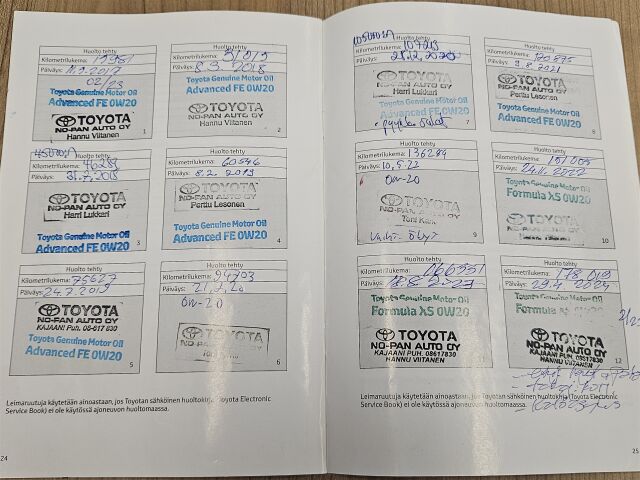 Huolto tehty
Kilometrilukema: 15981
Päiväys: 11.9.2017
02/23
Toyota Genuine Motor Oil
Advanced FE 0W20
TOYOTA
NO-PAN AUTO OY
Hannu Viitanen
1
Huolto tehty
Kilometrilukema: 31015
Päiväys: 8.3.2018
Toyota Genuine Motor Oil
Advanced FE 0W20
TOYOTA
NO-PAN AUTO OY
Hannu Viitanen
2
Huolto tehty
Kilometrilukema: 46289
Päiväys: 31.7.2018
TOYOTA
NO-PAN AUTO OY
Harri Lukkari
Toyota Genuine Motor Oil
Advanced FE 0W20
3
Huolto tehty
Kilometrilukema: 60546
Päiväys: 8.2.2019
TOYOTA
NO-PAN AUTO OY
Perttu Lesonen
Toyota Genuine Motor Oil
Advanced FE 0W20
4
Huolto tehty
Kilometrilukema: 75627
Päiväys: 24.7.2019
TOYOTA
NO-PAN AUTO OY
KAJAANI Puh. 08-617 830
Toyota Genuine Motor Oil
Advanced FE 0W20
5
Huolto tehty
Kilometrilukema: 94703
Päiväys: 21.2.20
0w-20
TOYOTA
NO-PAN AUTO OY
6
Leimaruutuja käytetään ainoastaan, jos Toyotan sähköinen huoltokirja (Toyota Electronic
Service Book) ei ole käytössä ajoneuvon huoltomaassa.
24
Huolto tehty
Kilometrilukema: 107219
Päiväys: 21.12.2020
TOYOTA
NO-PAN AUTO OY
Harri Lukkari
Toyota Genuine Motor Oil
Advanced FE 0W20
7
Huolto tehty
Kilometrilukema: 120875
Päiväys: 9.8.2021
TOYOTA
NO-PAN AUTO OY
Perttu Lesonen
Toyota Genuine Motor Oil
Advanced FE 0W20
8
Huolto tehty
Kilometrilukema: 136284
Päiväys: 10.5.22
0w-20
TOYOTA
NO-PAN AUTO OY
9
Huolto tehty
Kilometrilukema: 151005
Päiväys: 24.11.2022
Toyota Genuine Motor Oil
Formula XS 0W20
TOYOTA
NO-PAN AUTO OY
10
Huolto tehty
Kilometrilukema: 166551
Päiväys:
Toyota Genuine Motor Oil
Formula XS 0W20
TOYOTA
NO-PAN AUTO OY
KAJAANI PUH. 08617830
HANNU VIITANEN
11
Huolto tehty
Kilometrilukema: 178019
Päiväys: 29.4.2024
Toyota Genuine Motor Oil
Formula XS 0W20
TOYOTA
NO-PAN AUTO OY
KAJAANI PUH. 08617830
HANNU VIITANEN
12
Leimaruutuja käytetään ainoastaan, jos Toyotan sähköinen huoltokirja (Toyota Electronic
Service Book) ei ole käytössä ajoneuvon huoltomaassa.
25